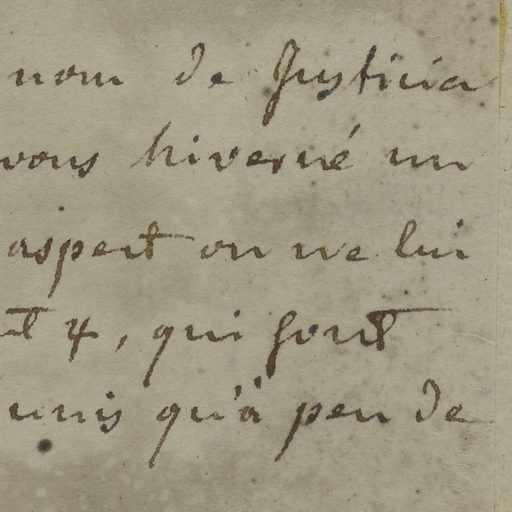 nom de Justicia
vous hiverné un
aspect on ne lui
4, qui sont
unis qu'à peu de